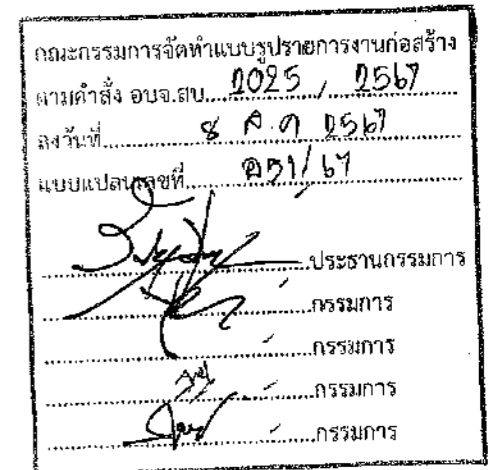 คณะกรรมการจัดทำแบบรูปรายการงานก่อสร้าง
ตามคำสั่ง อบจ.สบ. 2025 / 2567
ลงวันที่ 8 ส.ค 2567
แบบแปลนเลขที่ /67
ประธานกรรมการ
กรรมการ
กรรมการ
กรรมการ
กรรมการ